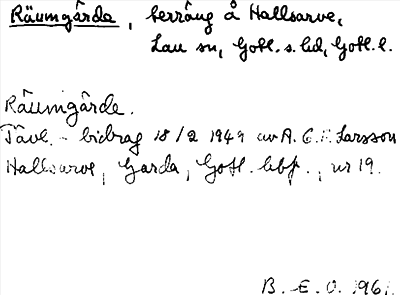 Räumgårda, terräng å Hallsarve,
Lau sn, Gotl. s. hd, Gotl. l.
Räumgårde.
Tävl. - bidrag 18/2 1949 av A. E. Larsson
Hallsarve, Garda, Gotl. bbf., nr 19.
B. E. O. 1961.